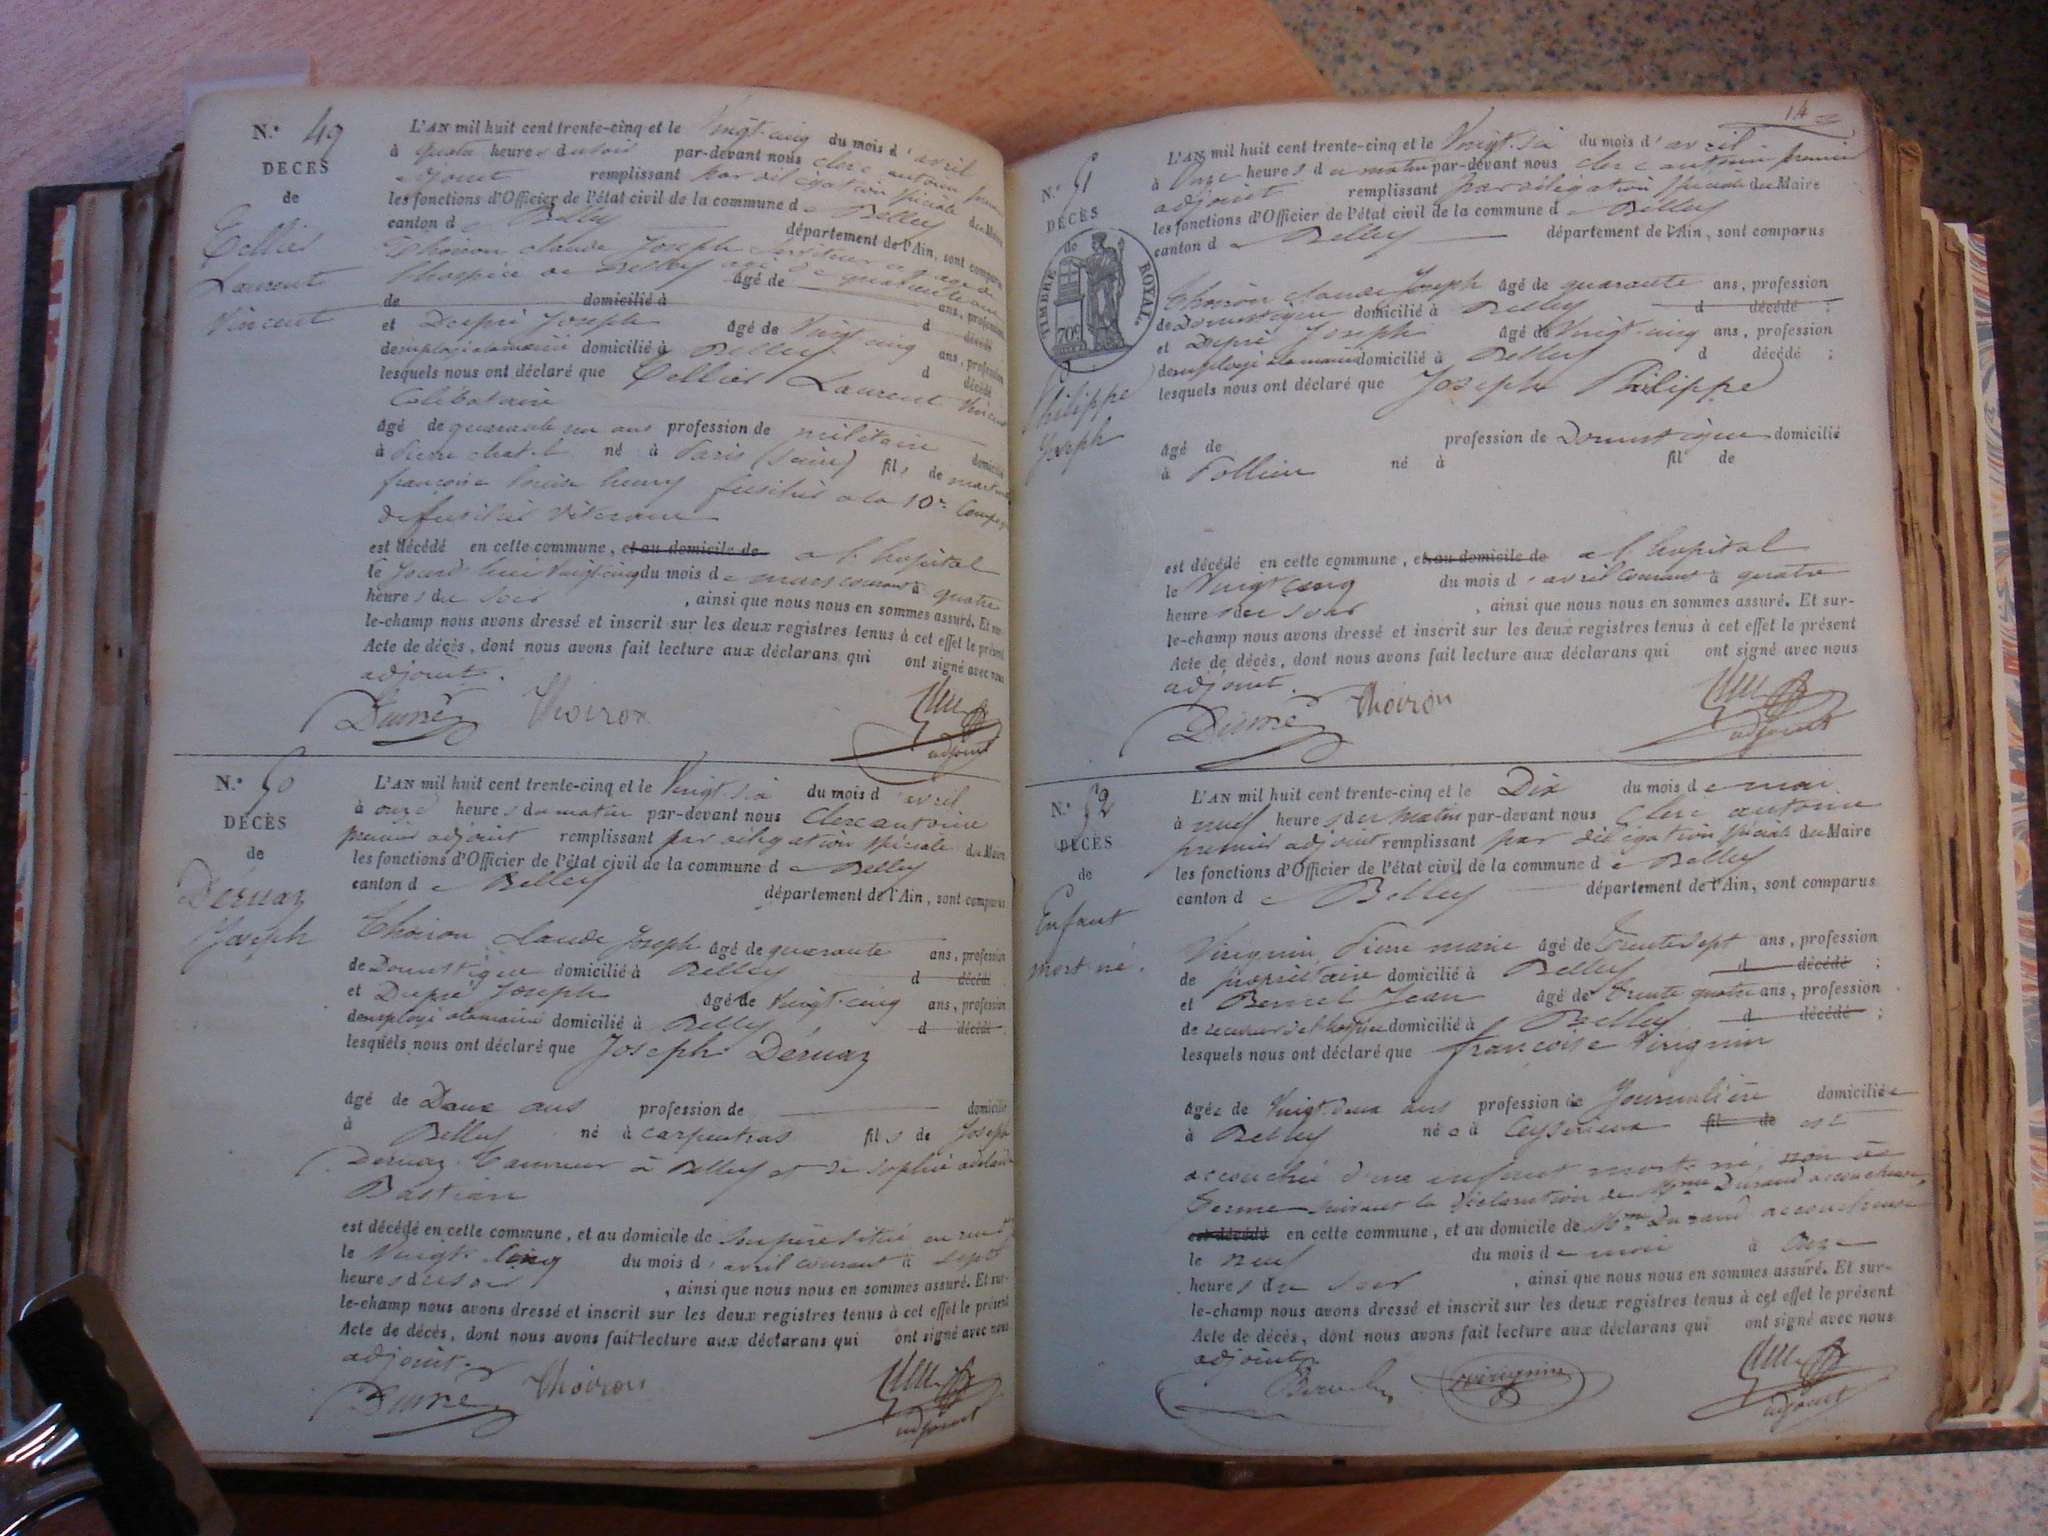 N.º 49
DÉCÈS
de
Cellier
Laurent
Vincent
L'AN mil huit cent trente-cinq et le Vingt-cinq du mois d'avril
à quatre heures du soir par-devant nous clerc antoine premier
adjoint remplissant par délégation spéciale du Maire
les fonctions d'Officier de l'état civil de la commune de Belley
canton de Belley département de l'Ain, sont comparus
Thoiron claude Joseph
l'hospice de Belley agé de quarante ans
de domicilié à âgé de ans, profession
d décédé
et Dupré Joseph âgé de Vingt cinq ans, profession
de employé à la mairie domicilié à Belley d décédé
lesquels nous ont déclaré que Cellier Laurent Vincent
Célibataire
âgé de quarante un ans profession de militaire domicilié
à Pierre chatel né à Paris (Seine) fils de
françoise louise henry fusilier a la 10e Compagnie
de fusiliers Vétérans
est décédé en cette commune, et au domicile de a l'hopital
le Jourd'hui Vingt cinq du mois de mars courant à quatre
heures du soir, ainsi que nous nous en sommes assuré. Et sur-
le-champ nous avons dressé et inscrit sur les deux registres tenus à cet effet le présent
Acte de décès, dont nous avons fait lecture aux déclarans qui ont signé avec nous
adjoint.
Dupré Thoiron
adjoint
N.º 50
DÉCÈS
de
Déruaz
Joseph
L'AN mil huit cent trente-cinq et le Vingt-six du mois d'avril
à onze heures du matin par-devant nous Clerc antoine
premier adjoint remplissant par délégation spéciale du Maire
les fonctions d'Officier de l'état civil de la commune de Belley
canton de Belley département de l'Ain, sont comparus
Thoiron Claude Joseph âgé de quarante ans, profession
de Domestique domicilié à Belley d décédé
et Dupré Joseph âgé de Vingt-cinq ans, profession
de employé à la mairie domicilié à Belley d décédé
lesquels nous ont déclaré que Joseph Déruaz
âgé de Deux ans profession de domicilié
à Belley né à carpentras fils de Joseph
Deruaz Tanneur à Belley et de Sophie adelaide
Bastian
est décédé en cette commune, et au domicile de son père situé
le Vingt-Cinq du mois d'avril courant à sept
heures du soir, ainsi que nous nous en sommes assuré. Et sur-
le-champ nous avons dressé et inscrit sur les deux registres tenus à cet effet le présent
Acte de décès, dont nous avons fait lecture aux déclarans qui ont signé avec nous
adjoint.
Dupré Thoiron
adjoint
14
N.º 51
DÉCÈS
de
TIMBRE ROYAL.
709
Philippe
Joseph
L'AN mil huit cent trente-cinq et le Vingt-six du mois d'avril
à Onze heures du matin par-devant nous clerc antoine premier
adjoint remplissant par délégation spéciale du Maire
les fonctions d'Officier de l'état civil de la commune de Belley
canton de Belley département de l'Ain, sont comparus
Thoiron claude Joseph âgé de quarante ans, profession
de Domestique domicilié à Belley d décédé ;
et Dupré Joseph âgé de Vingt-cinq ans, profession
de employé à la mairie domicilié à Belley d décédé ;
lesquels nous ont déclaré que Joseph Philippe
âgé de profession de Domestique domicilié
à Pollieu né à fil de
est décédé en cette commune, et au domicile de a l'hopital
le Vingt cinq du mois d'avril courant à quatre
heures du soir, ainsi que nous nous en sommes assuré. Et sur-
le-champ nous avons dressé et inscrit sur les deux registres tenus à cet effet le présent
Acte de décès, dont nous avons fait lecture aux déclarans qui ont signé avec nous
adjoint.
Dupré Thoiron
adjoint
N.º 52
DÉCÈS
de
Enfant
mort né.
L'AN mil huit cent trente-cinq et le Dix du mois de mai
à neuf heures du matin par-devant nous clerc antoine
premier adjoint remplissant par délégation spéciale du Maire
les fonctions d'Officier de l'état civil de la commune de Belley
canton de Belley département de l'Ain, sont comparus
Virignin Pierre marie âgé de trente sept ans, profession
de propriétaire domicilié à Belley d décédé ;
et Bernel Jean âgé de trente quatre ans, profession
de receveur de l'hospice domicilié à Belley d décédé ;
lesquels nous ont déclaré que françoise Virignin
âgée de Vingt deux ans profession de Journalière domiciliée
à Belley née à Ceyzerieux fil de est
accouchée d'une enfant mort né, non à
terme suivant la déclaration de Mme Durand accoucheuse,
est décédé en cette commune, et au domicile de Mme Durand accoucheuse
le neuf du mois de mai à onze
heures du soir, ainsi que nous nous en sommes assuré. Et sur-
le-champ nous avons dressé et inscrit sur les deux registres tenus à cet effet le présent
Acte de décès, dont nous avons fait lecture aux déclarans qui ont signé avec nous
adjoint.
virignin
adjoint